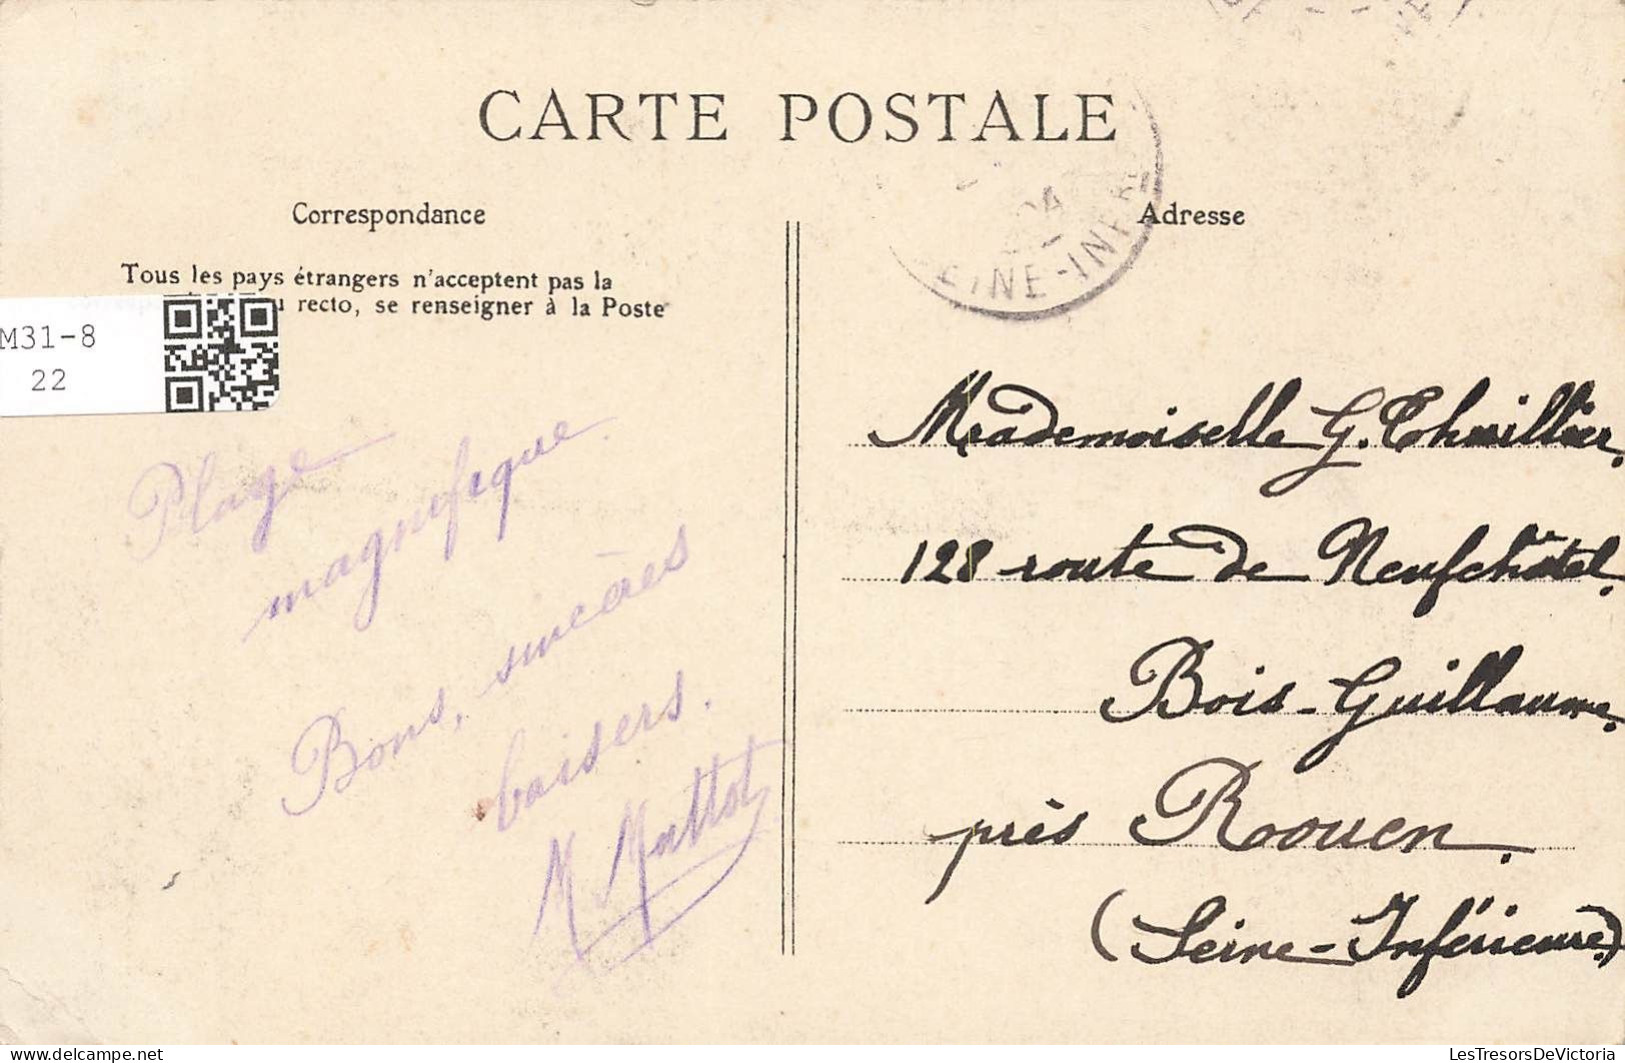 CARTE POSTALE
Correspondance
Tous les pays étrangers n'acceptent pas la
recto, se renseigner à la Poste
M31-8
22
Plage
magnifique.
Bons, sincères
baisers.
M Mattot
Adresse
04
SEINE-INFRE
Mademoiselle G.
128 route de Neufchâtel.
Bois-Guillaume.
près Roouen.
(Seine-Inférieure)
LesTresorsDeVictoria